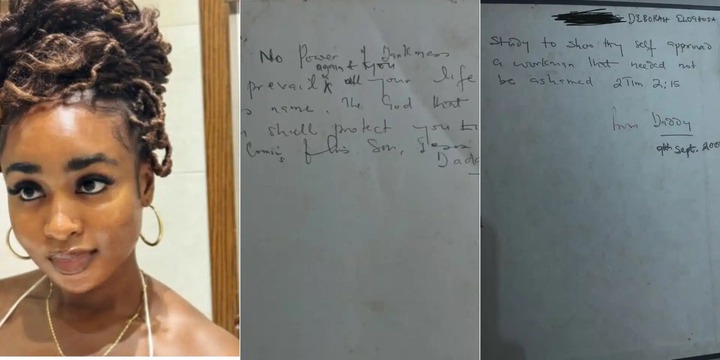 No Power of Darkness
against you
prevail all your life
name. The God that
shall protect you
Coming of his Son, Jesus
Dadd
DEBORAH
Study to show thy self approved
a workman that needed not
be ashamed 2 Tim 2:15
from Daddy
9th Sept. 200